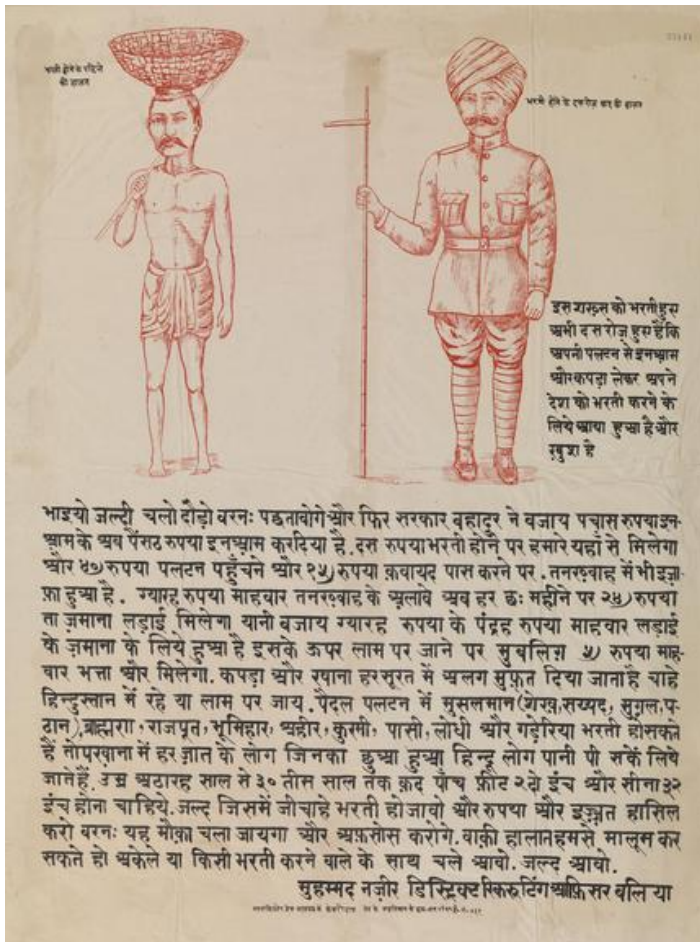 भरती होने के पहिले
की हालत
भरती होने के दस रोज़ बाद की हालत
इस शख़्स को भरती हुए
अभी दस रोज़ हुए हैं कि
अपनी पलटन से इनआम
और कपड़ा लेकर अपने
देश को भरती करने के
लिये आया हुआ है और
ख़ुश है
भाइयो जल्दी चलो दौड़ो वरनः पछतावोगे और फिर सरकार बहादुर ने बजाय पचास रुपया इन-
आम के अब पैंसठ रुपया इनआम कर दिया है. दस रुपया भरती होने पर हमारे यहाँ से मिलेगा
और ४०) रुपया पलटन पहुँचने और १५) रुपया क़वायद पास करने पर. तनख़्वाह में भी इज़ा-
फ़ा हुआ है. ग्यारह रुपया माहवार तनख़्वाह के अलावे अब हर छः महीने पर २४) रुपया
ता ज़माना लड़ाई मिलेगा यानी बजाय ग्यारह रुपया के पंद्रह रुपया माहवार लड़ाई
के ज़माना के लिये हुआ है इसके ऊपर लाम पर जाने पर मुबलिग़ ५) रुपया माह-
वार भत्ता और मिलेगा. कपड़ा और खाना हर सूरत में अलग मुफ़्त दिया जाता है चाहे
हिन्दुस्तान में रहे या लाम पर जाय. पैदल पलटन में मुसलमान (शेख़, सय्यद, मुग़ल, प-
ठान), ब्राह्मण, राजपूत, भूमिहार, अहीर, कुरमी, पासी, लोधी और गड़ेरिया भरती हो सकते
हैं तोपख़ाना में हर ज़ात के लोग जिनका छुआ हुआ हिन्दू लोग पानी पी सकें लिये
जाते हैं. उम्र अठारह साल से ३० तीस साल तक क़द पाँच फ़ीट २ दो इंच और सीना ३२
इंच होना चाहिये. जल्द जिसमें जी चाहे भरती हो जावो और रुपया और इज़्ज़त हासिल
करो वरनः यह मौक़ा चला जायगा और अफ़सोस करोगे. बाक़ी हालात हमसे मालूम कर
सकते हो अकेले या किसी भरती करने वाले के साथ चले आवो. जल्द आवो.
मुहम्मद नज़ीर डिस्ट्रिक्ट रिकरूटिंग आफ़िसर बलिया